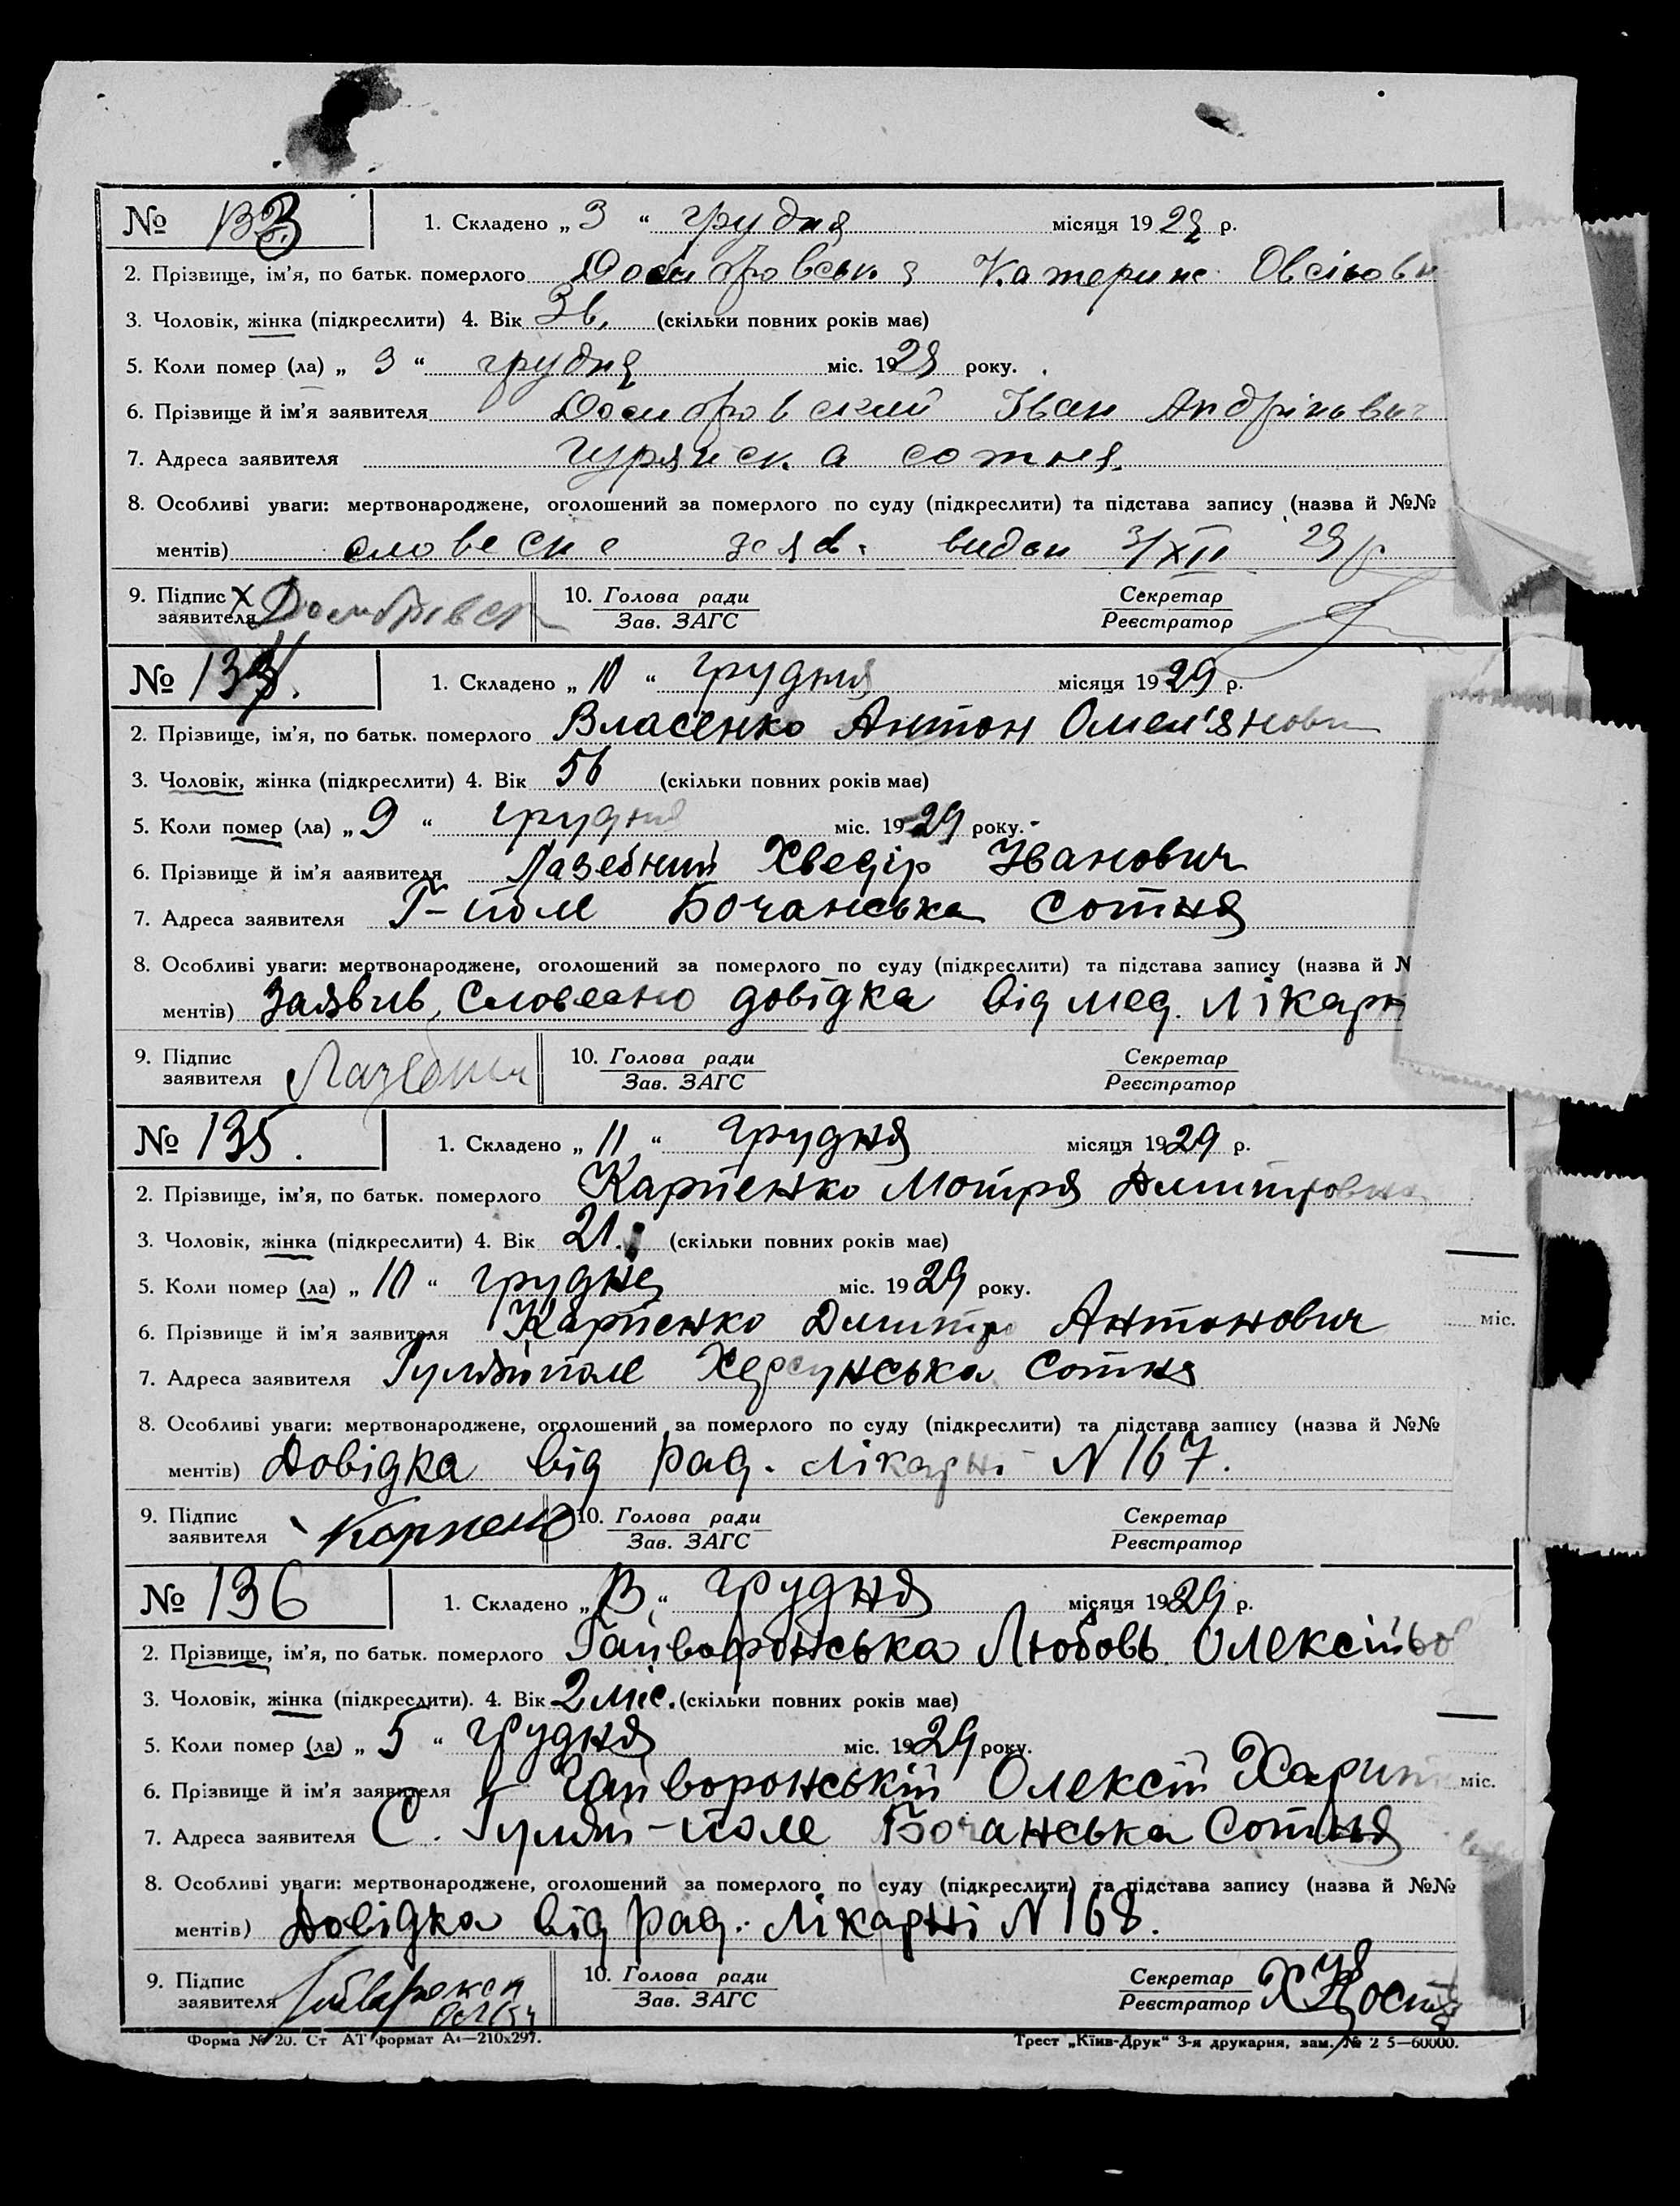 № 133 1. Складено „ 3 “ грудня місяця 19 29 р.
2. Прізвище, ім’я, по батьк. померлого Домбровська Катерина Овсіювн
3. Чоловік, жінка (підкреслити) 4. Вік (скільки повних років має)
5. Коли помер (ла) „ 3 “ грудня міс. 19 29 року.
6. Прізвище й ім’я заявителя Домбровский Іван Андрієвич
7. Адреса заявителя сотня.
8. Особливі уваги: мертвонароджене, оголошений за померлого по суду (підкреслити) та підстава запису (назва й №№
ментів) словесна заяв. видан 3/XII 29 р
9. Підпис заявителя 10. Голова ради Зав. ЗАГС Секретар Реєстратор
№ 134. 1. Складено „ 10 “ грудня місяця 19 29 р.
2. Прізвище, ім’я, по батьк. померлого Власенко Антон Омел'янови
3. Чоловік, жінка (підкреслити) 4. Вік 56 (скільки повних років має)
5. Коли помер (ла) „ 9 “ грудня міс. 19 29 року.
6. Прізвище й ім’я аявителя Лазебний Хведір Іванович
7. Адреса заявителя Г-поле Бочанська Сотня
8. Особливі уваги: мертвонароджене, оголошений за померлого по суду (підкреслити) та підстава запису (назва й N
ментів) Заявив словесно довідка від мед. лікарн
9. Підпис заявителя Лазебний 10. Голова ради Зав. ЗАГС Секретар Реєстратор
№ 135. 1. Складено „ 11 “ грудня місяця 19 29 р.
2. Прізвище, ім’я, по батьк. померлого Карпенко Мотря Дмитровна
3. Чоловік, жінка (підкреслити) 4. Вік 21. (скільки повних років має)
5. Коли помер (ла) „ 10 “ грудня міс. 19 29 року.
6. Прізвище й ім’я заявителя Карпенко Дмитро Антонович міс.
7. Адреса заявителя Гуляйполе Херсунська Сотня
8. Особливі уваги: мертвонароджене, оголошений за померлого по суду (підкреслити) та підстава запису (назва й №№
ментів) Довідка від рад. лікарні N 167.
9. Підпис заявителя Карпенко 10. Голова ради Зав. ЗАГС Секретар Реєстратор
№ 136 1. Складено „ 13 “ грудня місяця 19 29 р.
2. Прізвище, ім’я, по батьк. померлого Гайворонська Любовь Олексійов
3. Чоловік, жінка (підкреслити). 4. Вік 2 міс. (скільки повних років має)
5. Коли помер (ла) „ 5 “ грудня міс. 19 29 року.
6. Прізвище й ім’я заявителя Гайворонській Олексій Харит міс.
7. Адреса заявителя С. Гуляй-поле Бочанська Сотня
8. Особливі уваги: мертвонароджене, оголошений за померлого по суду (підкреслити) та підстава запису (назва й №№
ментів) Довідка від рад. лікарні N 168.
9. Підпис заявителя 10. Голова ради Зав. ЗАГС Секретар Реєстратор
Форма № 20. Ст АТ формат А4—210х297. Трест „Київ-Друк“ 3-я друкарня, зам. № 2 5—60000.